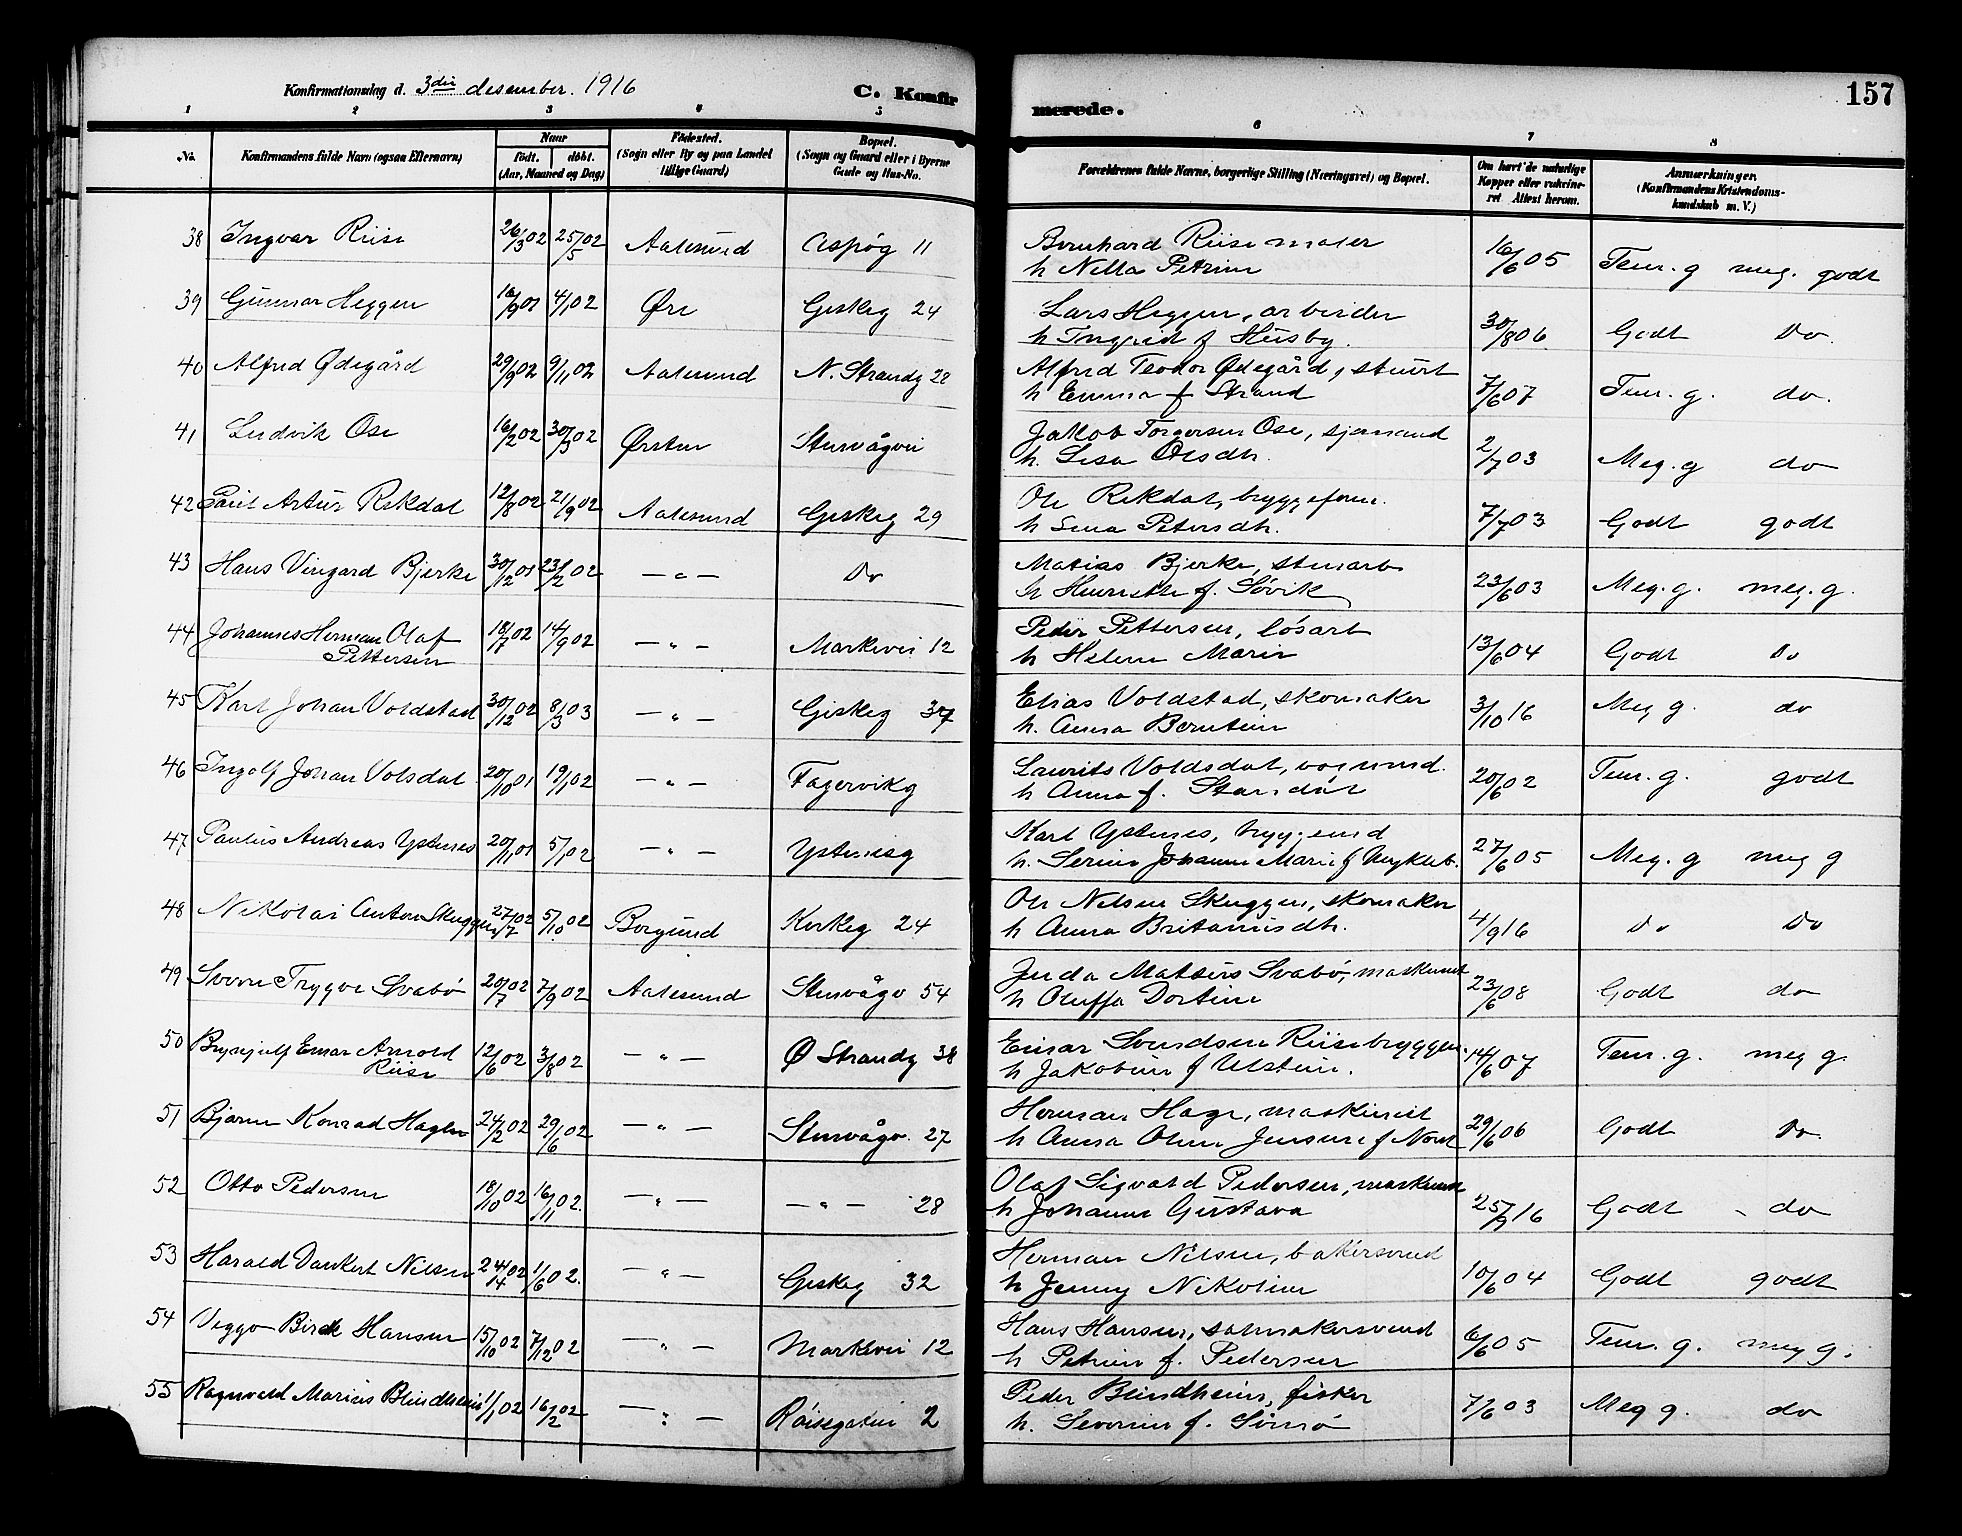 Konfirmationsdag d. 3die desember. 1916
C. Konfir
merede.
157
1 2 3 4 5 6 7 8
No.
Konfirmandens fulde Navn (ogsaa Efternavn)
Naar
födt. döbt.
(Aar, Maaned og Dag)
Födested.
(Sogn eller By og paa Landet
tillige Gaard)
Bopæl.
(Sogn og Gaard eller i Byerne
Gade og Hus-No.
Forældrenes fulde Navne, borgerlige Stilling (Næringsvei) og Bopæl.
Om havt de naturlige
Kopper eller vaksine-
ret Attest herom.
Anmærkninger.
(Konfirmandens Kristendoms-
kundskab m. V.)
38 Ingvar Riise 26/3 02 25/5 02 Aalesund Aspøg 11 Bernhard Riise maler 16/6 05 Tem. g meg. godt
h Nella Petrine
39 Gunnar Heggen 16/9 01 4/1 02 Øre Giskeg 24 Lars Heggen, arbeider 30/8 06 Godt Do.
h Ingrid f Husby.
40 Alfred Ødegård 29/9 02 9/11 02 Aalesund N. Strandg 28 Alfred Teodor Ødegård, stuert 7/6 07 Tem. g. do.
h Emma f Strand
41 Ludvik Ose 16/2 02 30/3 02 Ørsten Stenvågvei Jakob Torgersen Ose, sjømand 2/7 03 Meg. g do
h. Lisa Olsdtr.
42 Paul Artur Rekdal 12/8 02 21/9 02 Aalesund Giskeg 29 Ole Rekdal, byggeform. 7/7 03 Godt godt
h Sina Petersdtr.
43 Hans Vingard Bjerke 30/12 01 23/2 02 — " — Do Matias Bjerke, stenarb 23/6 03 Meg. g. meg. g.
h Henrikke f. Søvik
44 Johannes Herman Olaf 18/7 02 14/9 02 — " — Markevei 12 Peder Pettersen, løsarb 13/6 04 Godt Do
Pettersen h Helene Marie
45 Karl Johan Voldstad 30/12 02 8/3 03 — " — Giskeg 37 Elias Voldstad, skomaker 3/10 16 Meg g. do
h. Anna Berntine
46 Ingolf Johan Volsdal 20/10 01 19/1 02 — " — Fagervikg Laurits Voldsdal, 20/6 02 Tem. g. godt
h Anna f.
47 Paulus Andreas Ystenes 20/11 01 5/1 02 — " — Ystenesg Karl Ystenes, 27/6 05 Meg. g meg g
h. Serine Johanne Marie f Mykleb.
48 Nikolai Anton Skuggen 27/7 02 5/10 02 Borgund Kirkeg 24 Ole Nilsen Skuggen, skomaker 4/9 16 Do Do
h Anna Britanusdtr.
49 Sverre Trygve Svabø 20/7 02 7/9 02 Aalesund Stenvågv 54 Juda Mateus Svabø, maskinist 23/6 08 Godt do
h Oluffa Dortine
50 Brynjulf Einar Arnold 12/6 02 3/8 02 — " — Ø Strandg 38 Einar Svendsen Riise 14/6 07 Tem. g. meg g.
Riise h Jakobine f Ulstein.
51 Bjarne Konrad Hagen 24/2 02 29/6 02 — " — Stenvågv. 27 Herman Hage, maskinist 29/6 06 Godt Do.
h Anna Oline Jensine f
52 Otto Pedersen 18/10 02 16/11 02. — " — — " — 28 Olaf Sigvald Pedersen, maskinist 25/9 16 Godt - do
h Johanne Gustava
53 Harald Dankert Nilsen 24/4 02 1/6 02. — " — Giskeg 32 Herman Nilsen, bakersvend 10/6 04 Godt godt
h Jenny Nikoline
54 Viggo Birck Hansen 15/10 02 7/12 02 — " — Markevei 12 Hans Hansen, salmakersvend 6/6 05 Tem. g. meg g.
h Petrine f. Pedersen
55 Ragnvald Marius Blindheim 1/1 02 16/2 02 — " — Røisegaten 2 Peder Blindheim, fisker 7/6 03 Meg g. do
h. Severine f.